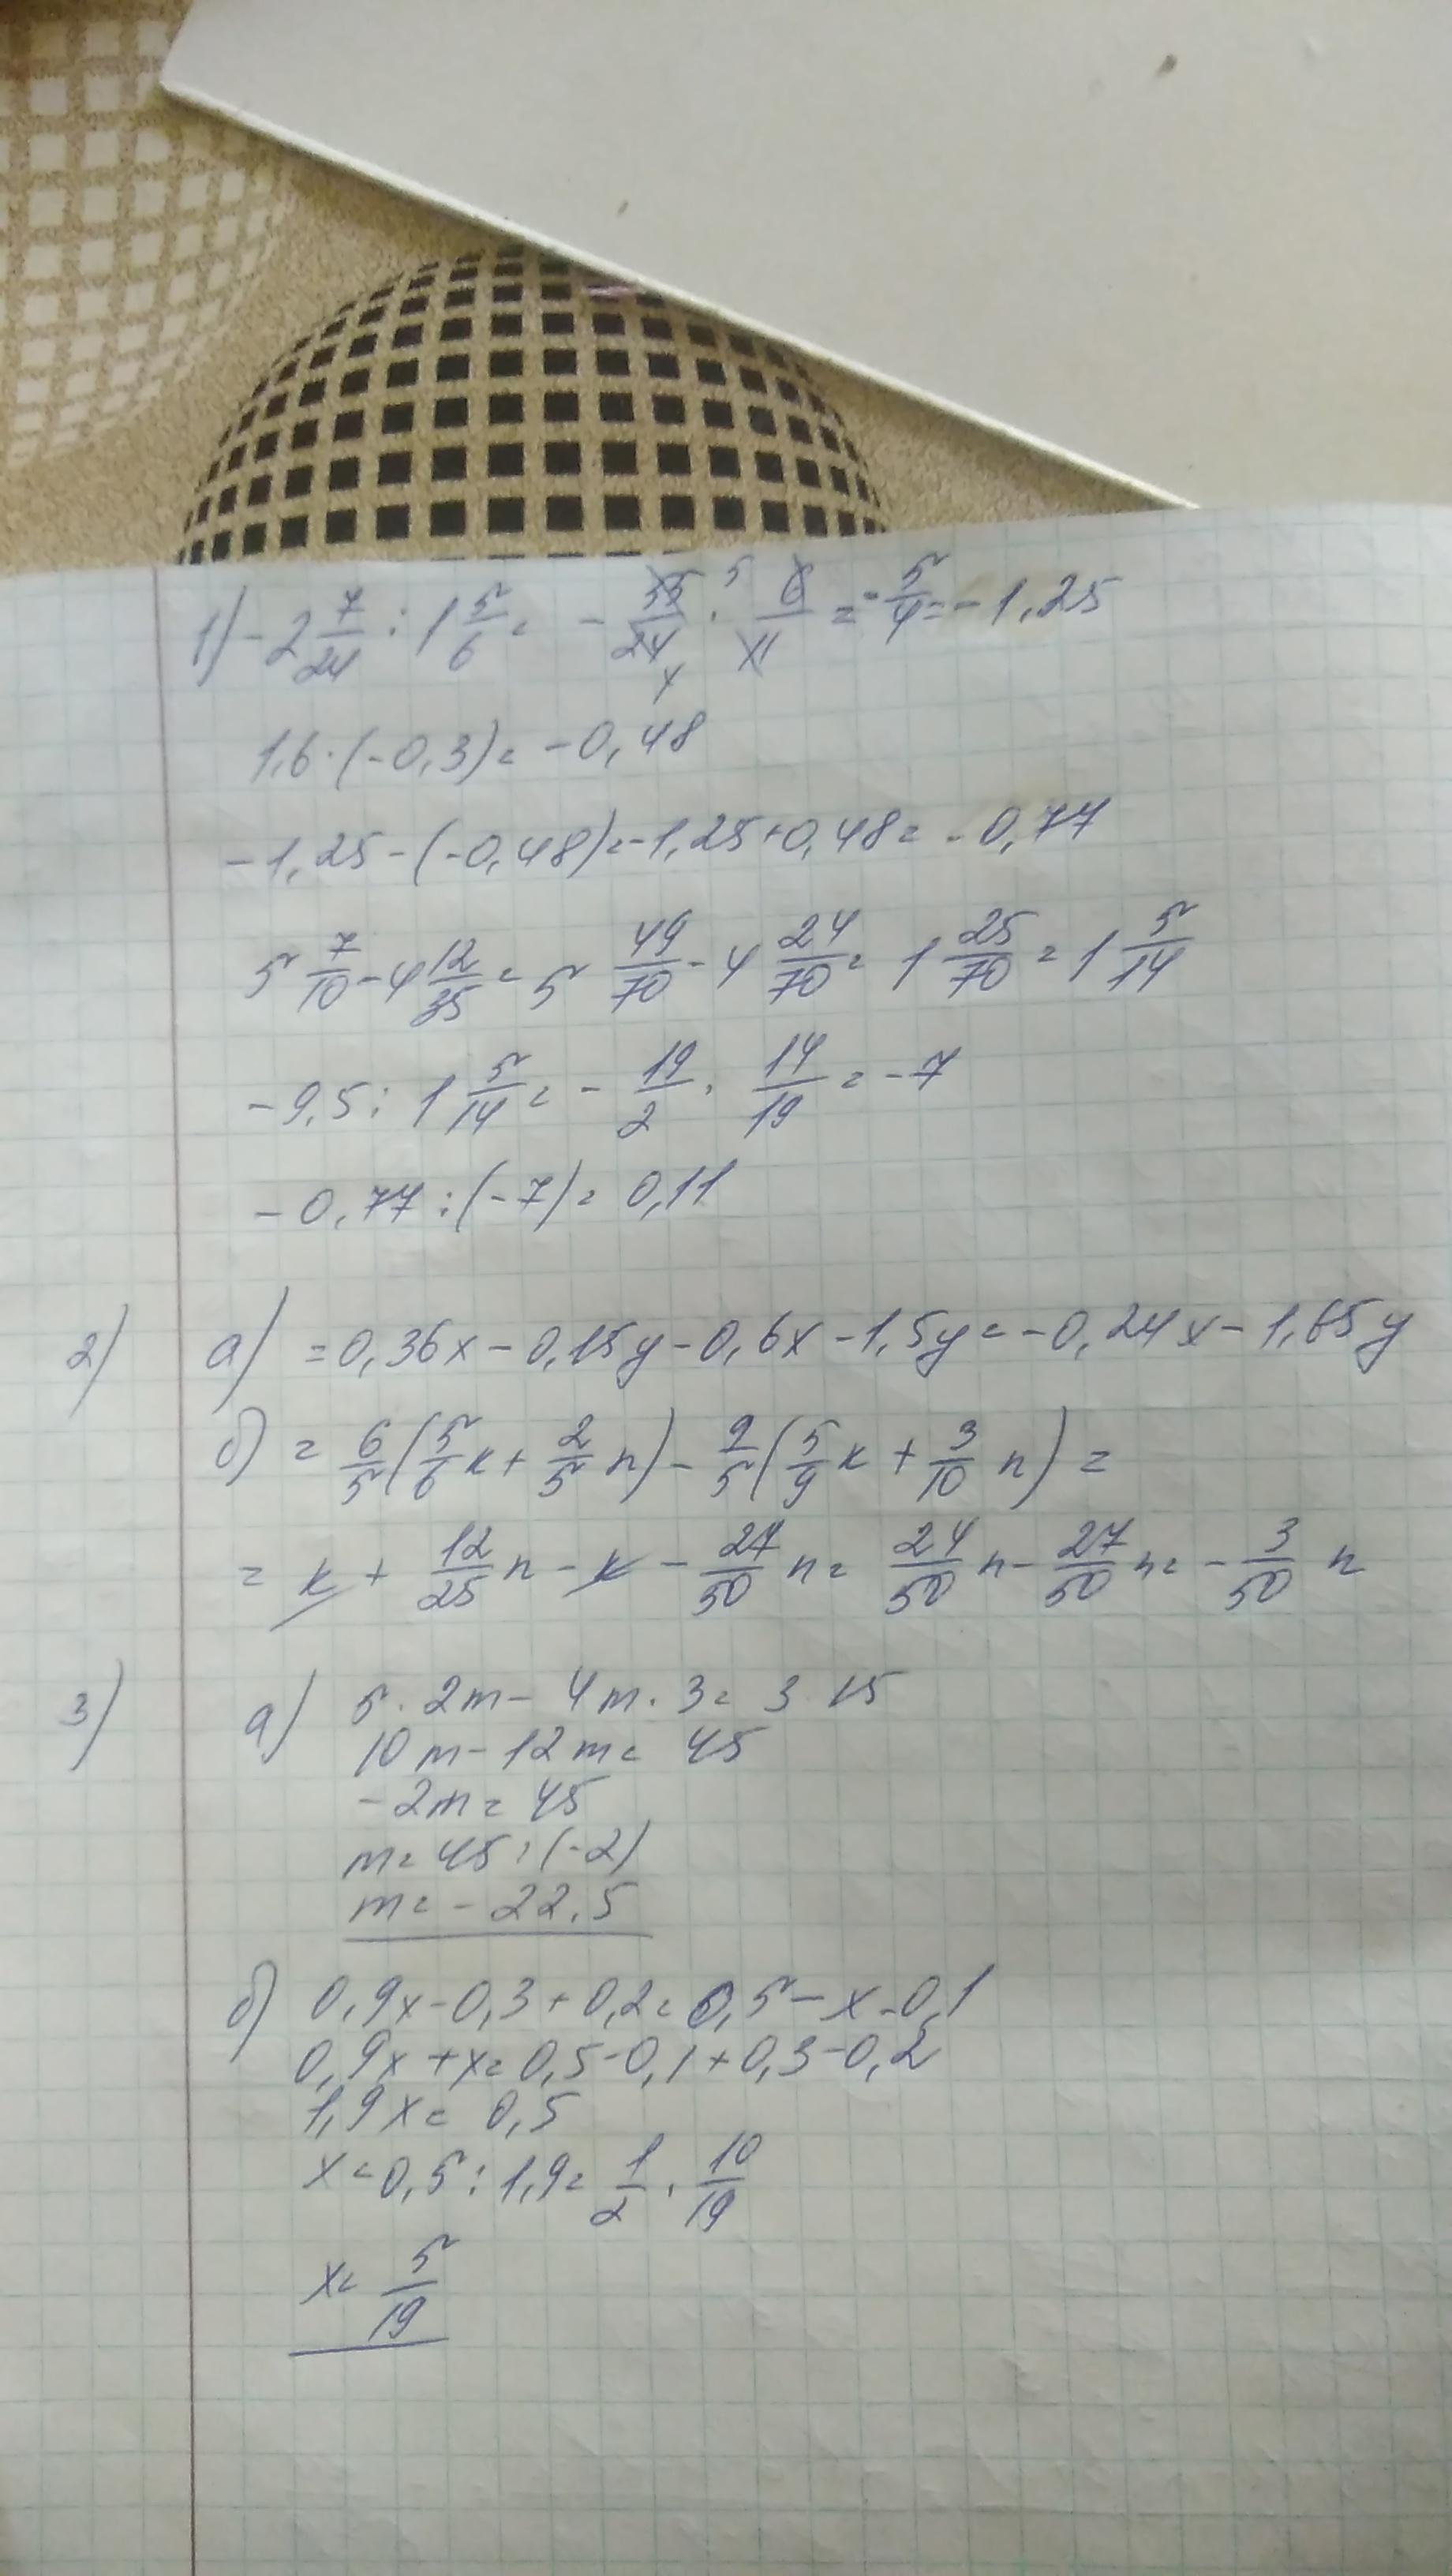 1) -2 7/24 : 1 5/6 = - 55/24 4 · 5 6/11 = - 5/4 = -1,25
1,6·(-0,3)= -0,48
-1,25-(-0,48)=-1,25+0,48= -0,77
5 7/10 - 4 12/35 = 5 49/70 - 4 24/70 = 1 25/70 = 1 5/14
-9,5 : 1 5/14 = - 19/2 · 14/19 = -7
-0,77 : (-7)= 0,11
2) а) =0,36x-0,15y-0,6x-1,5y=-0,24x-1,65y
б) = 6/5(5/6k+2/5n)-9/5(5/9k+3/10n)=
= k + 12/25n - k - 27/50n = 24/50n - 27/50n = -3/50n
3) а) 5·2m-4m·3= 3·15
10m-12m= 45
-2m= 45
m= 45:(-2)
m= -22,5
б) 0,9x-0,3+0,2= 0,5-x-0,1
0,9x+x=0,5-0,1+0,3-0,2
1,9x= 0,5
x=0,5:1,9= 1/2 · 10/19
x= 5/19